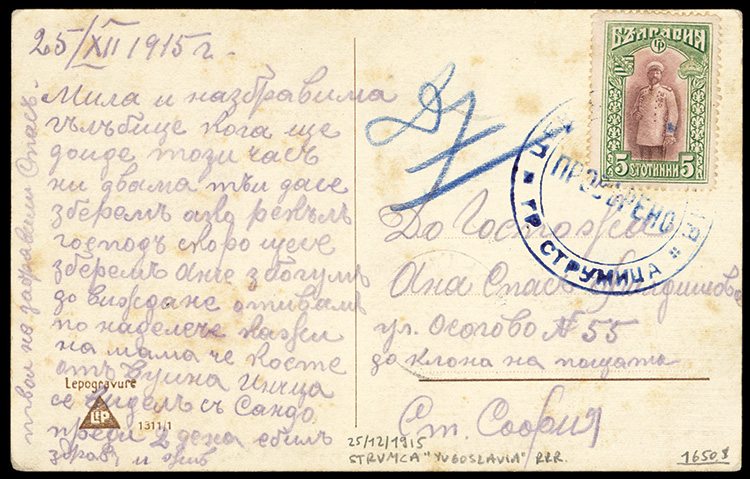 25/XII 1915 г.
Мила и назбравима
гълъбице кога ще
доиде този часъ
ни двама тъи дасе
зберемъ ако рекълъ
господъ скоро щесе
зберемъ Ане збогумъ
до виждане отивамъ
по наделече кажи
на мама че Косте
отъ Вуина
се видел съ Сандо
преди 2 дена е билъ
здравъ и живъ
твои не забравим Спасъ
Lepogravure
1311/1
БЪЛГАРИЯ
5 СТОТИНКИ 5
ПРОВѢРЕНО
ГР. СТРУМИЦА
До Госпожа
Ана Спасъ
ул. Осогово № 55
до клона на пощата
Ст. София
25/12/1915
STRUMCA "YUGOSLAVIA" RRR.
1650$